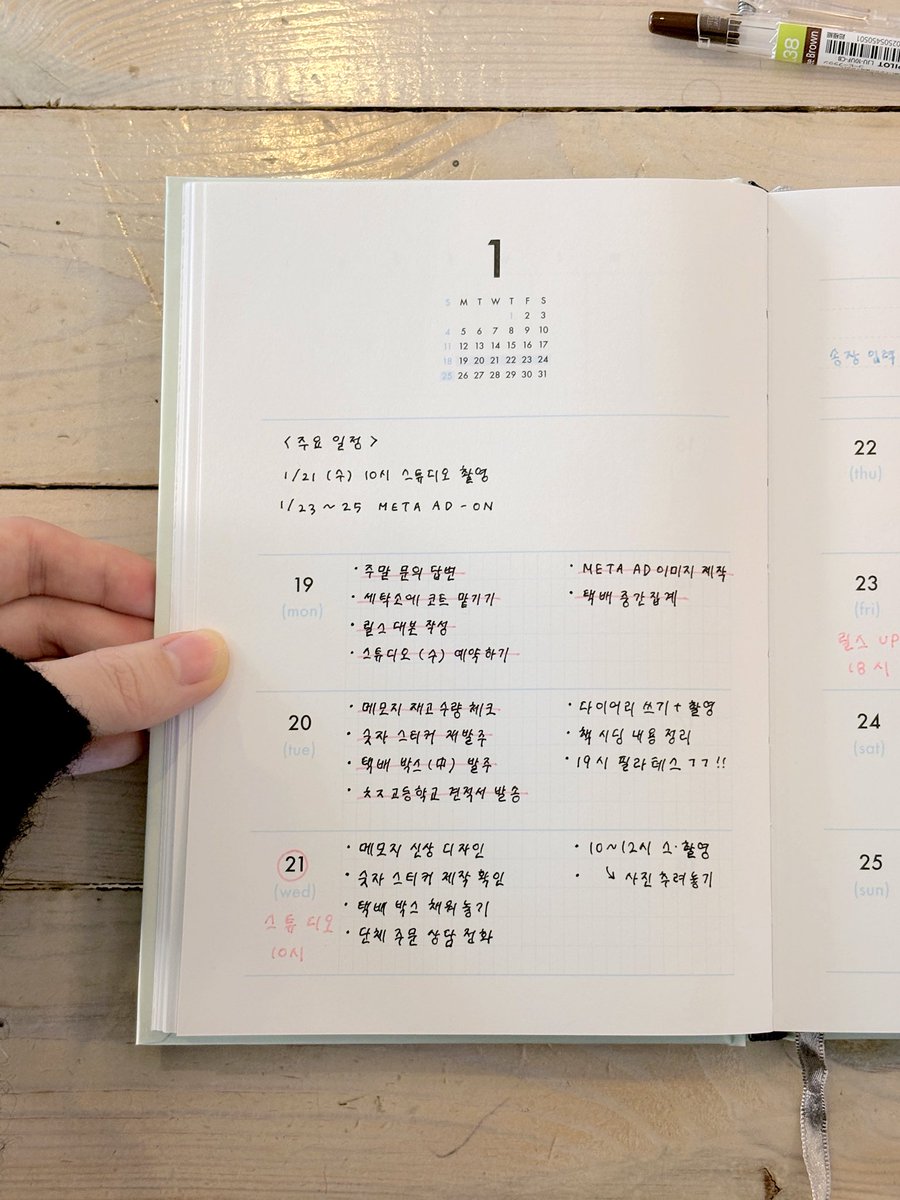 38
e Brown
02505450501
PILOT LJU-10UF-CB
1
S M T W T F S
1 2 3
4 5 6 7 8 9 10
11 12 13 14 15 16 17
18 19 20 21 22 23 24
25 26 27 28 29 30 31
<주요 일정>
1/21 (수) 10시 스튜디오 촬영
1/23 ~ 25 META AD - ON
19
(mon)
· 주말 문의 답변
· 세탁소에 코트 맡기기
· 릴스 대본 작성
· 스튜디오 (수) 예약하기
· META AD 이미지 제작
· 택배 중간집계
20
(tue)
· 메모지 재고 수량 체크
· 숫자 스티커 재발주
· 택배 박스(中) 발주
· ㅊㅈ고등학교 견적서 발송
· 다이어리 쓰기 + 촬영
· 책 시딩 내용 정리
· 19시 필라테스 ㄱㄱ!!
21
(wed)
스튜디오
10시
· 메모지 신상 디자인
· 숫자 스티커 제작 확인
· 택배 박스 채워놓기
· 단체 주문 상담 전화
· 10~12시 스·촬영
· ↳ 사진 추려놓기
송장 입력
22
(thu)
23
(fri)
릴스 UP
18시
24
(sat)
25
(sun)